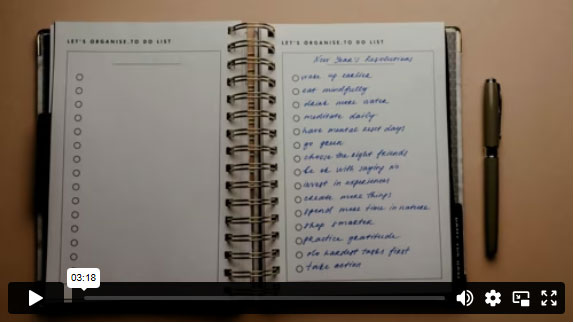 LET'S ORGANISE. TO DO LIST
LET'S ORGANISE. TO DO LIST
New Year's Resolutions
wake up earlier
eat mindfully
drink more water
meditate daily
have mental rest days
go green
choose the right friends
be ok with saying no
invest in experiences
create more things
spend more time in nature
shop smarter
practice gratitude
do hardest tasks first
take action
03:18